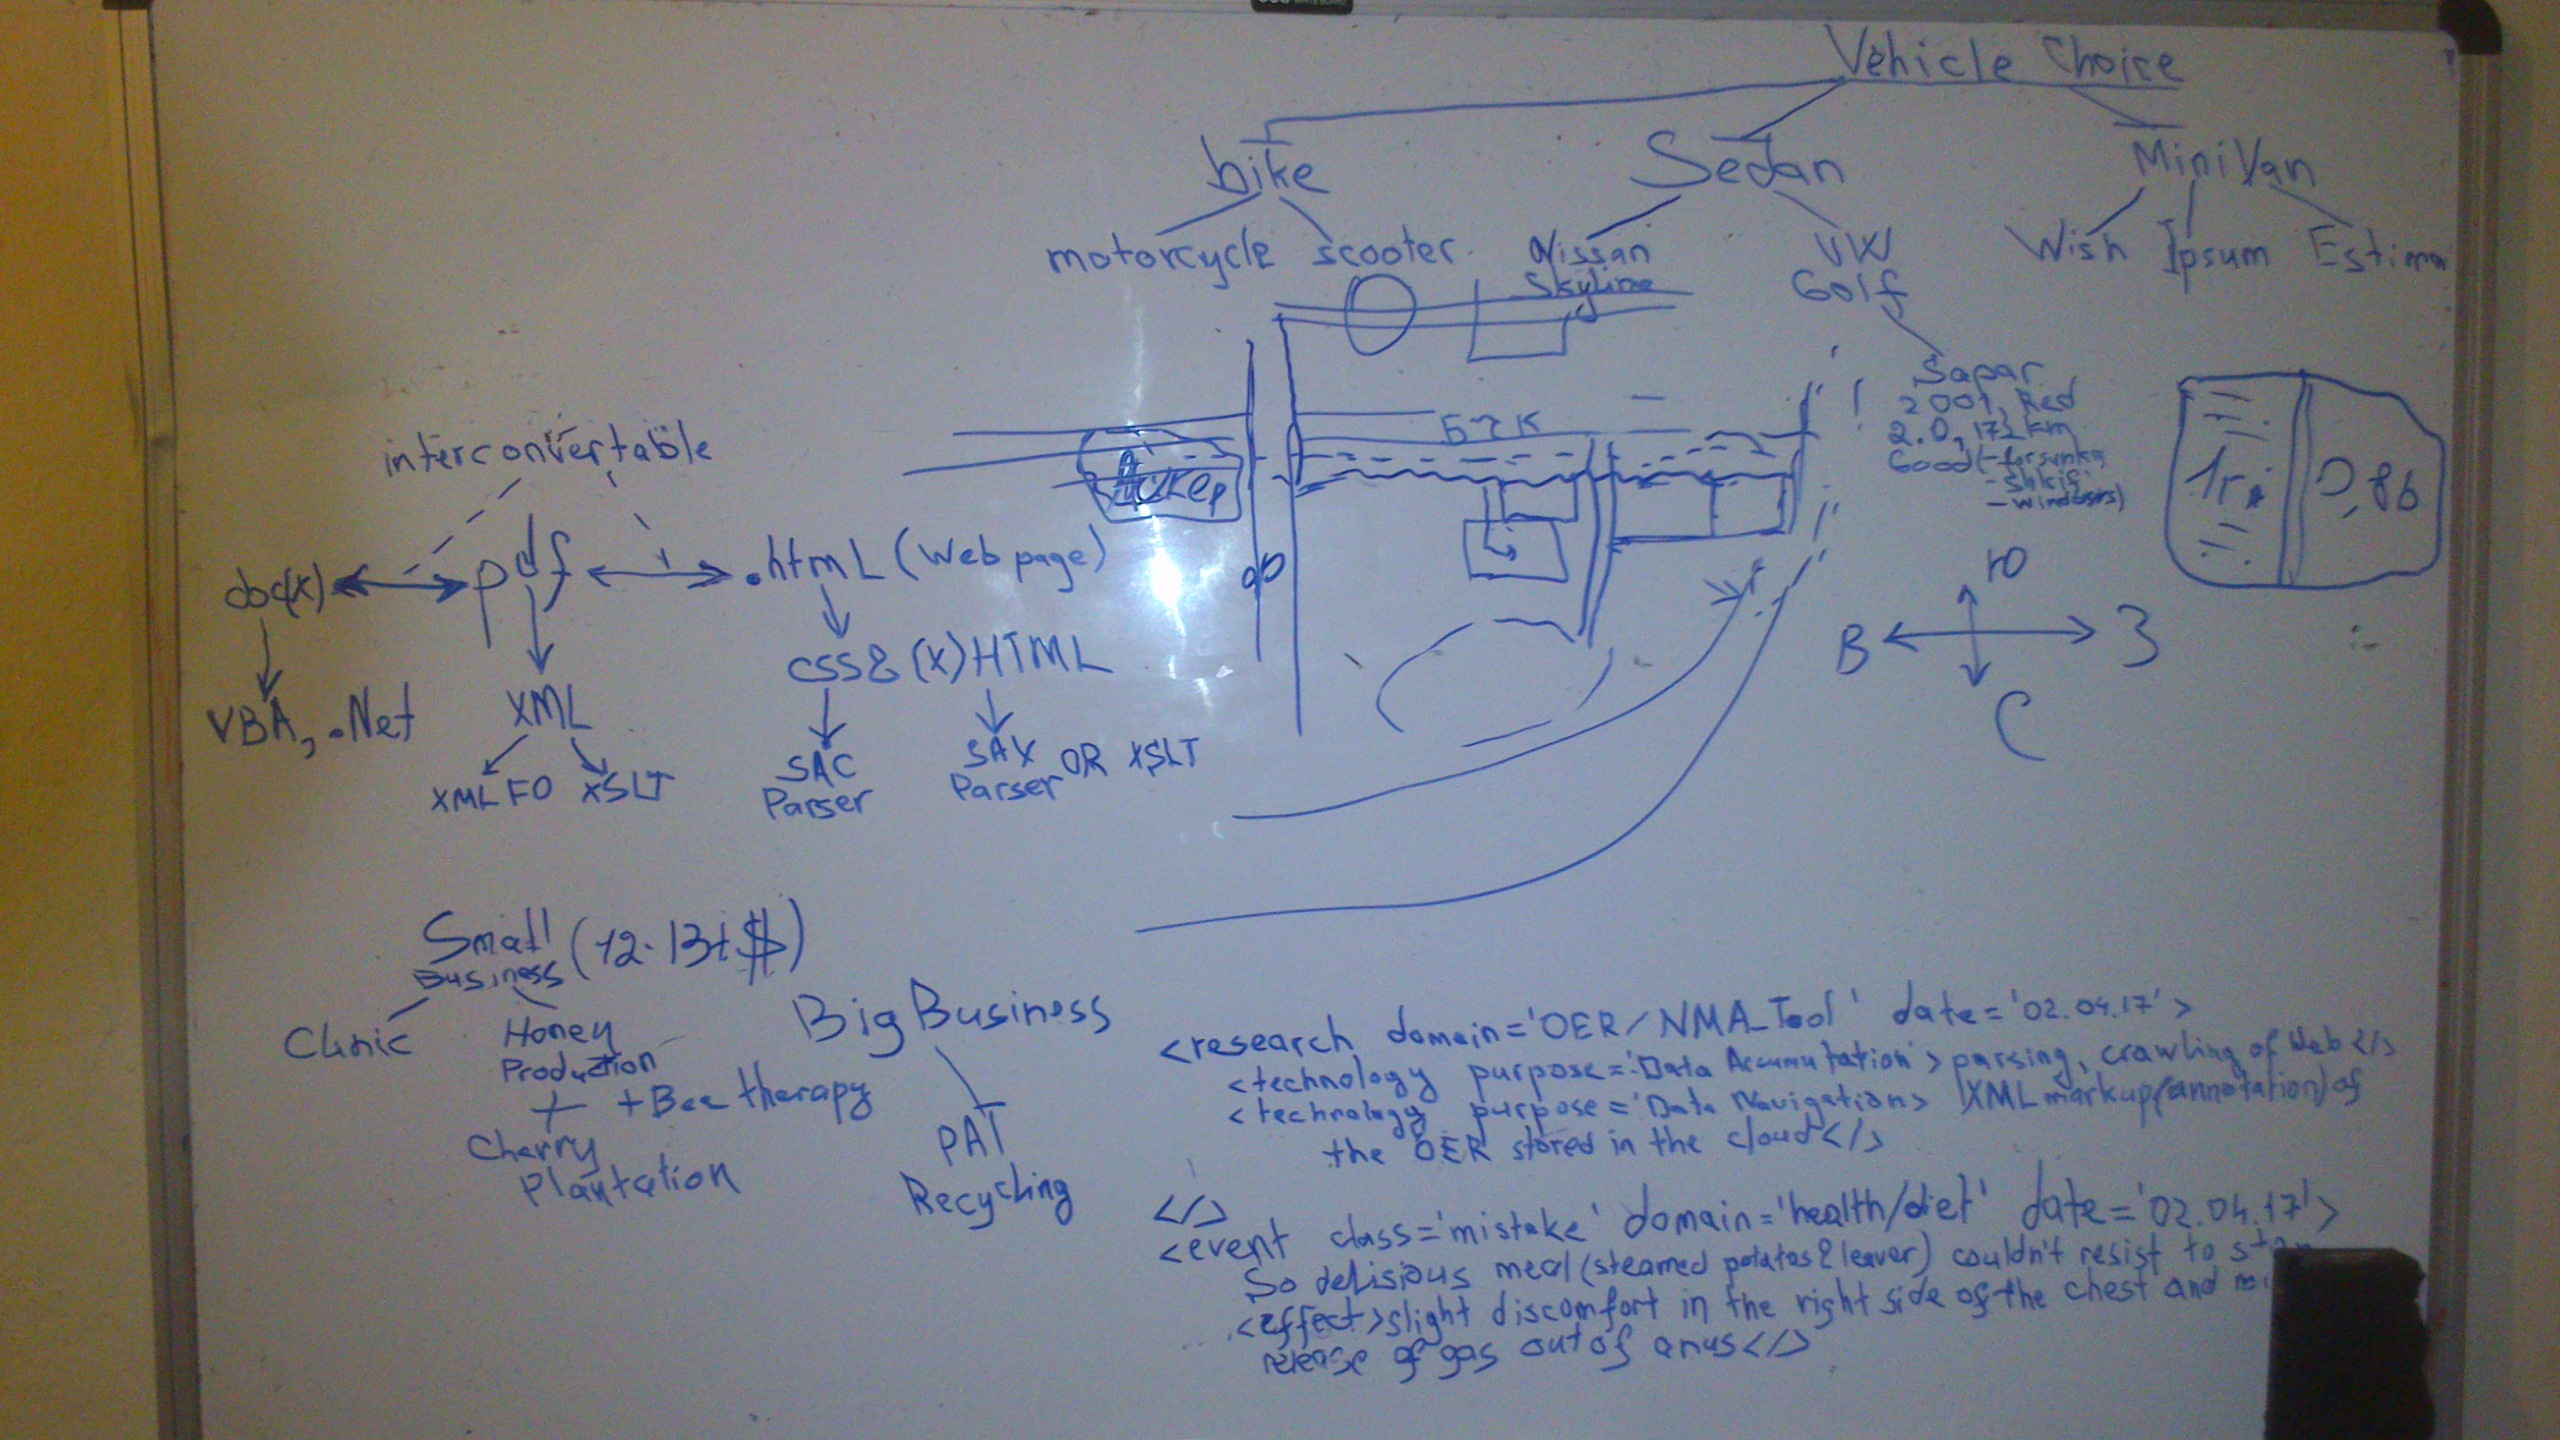 Vehicle Choice
bike Sedan MiniVan
motorcycle scooter Nissan Skyline VW Golf Wish Ipsum Estima
Sapar
2001, Red
2.0, 172 km
Good (-forsunka
- windows)
БЧК
0,86
Ю
В З
С
interconvertable
doc(x) pdf .html (Web page)
VBA, .Net XML css & (x)HTML
XML FO XSLT SAC Parser SAX Parser OR XSLT
Small Business (12-13t $)
Clinic Honey Production
+ + Bee therapy
Cherry Plantation
Big Business
PAT
Recycling
<research domain='OER/NMA_Tool' date='02.04.17'>
<technology purpose='Data Accumutation'> parsing, crawling of Web </>
<technology purpose='Data Navigation> XML markup(annotation) of
the OER stored in the cloud </>
</>
<event class='mistake' domain='health/diet' date='02.04.17'>
So delisious meal (steamed potatos & leaver) couldn't resist to
<effect> slight discomfort in the right side of the chest and
release of gas out of anus </>